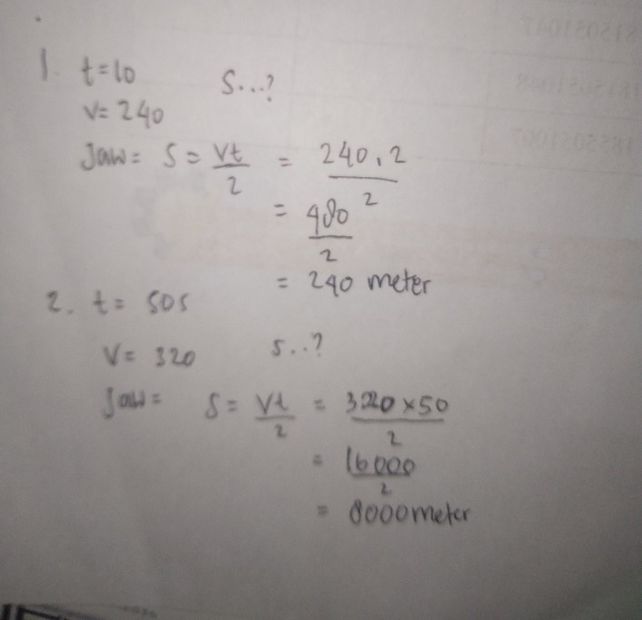 1. t=10 S...?
V= 240
Jaw= S = Vt/2 = 240.2/2
= 480/2
= 240 meter
2. t= 50s
V= 320 s..?
Jaw= S= Vt/2 = 320x50/2
= 16000/2
= 8000 meter